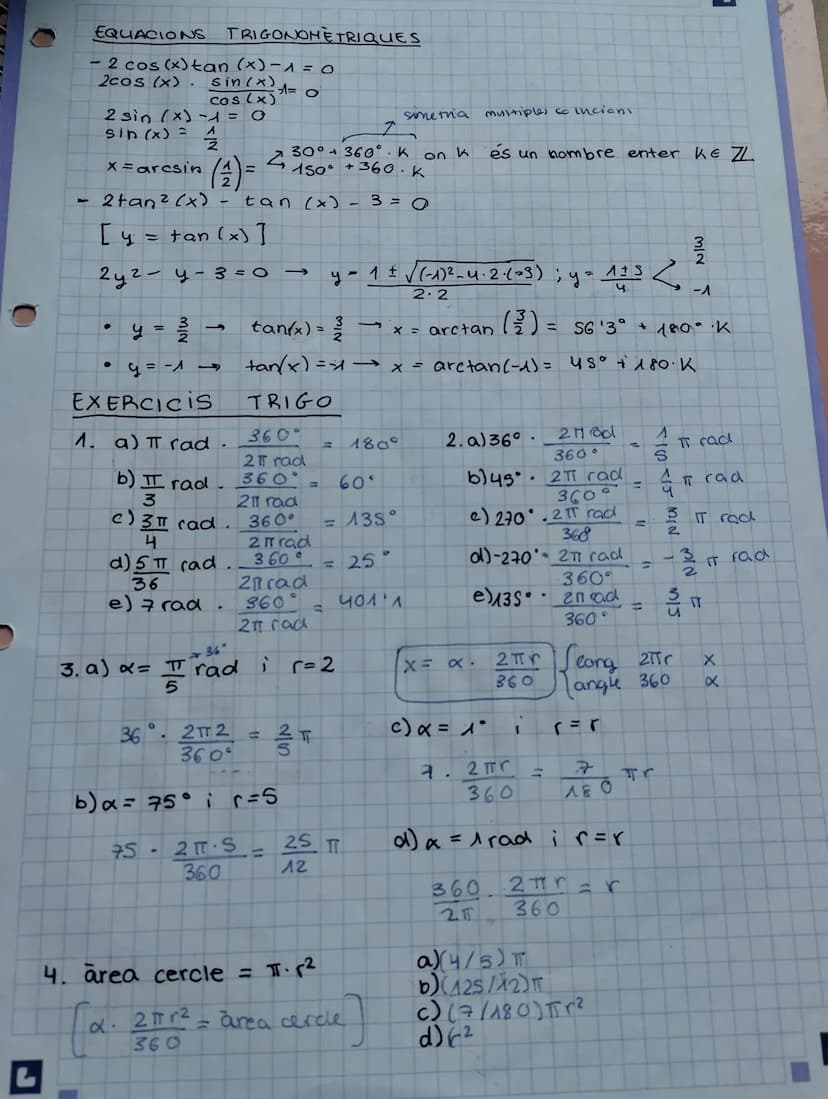 EQUACIONS TRIGONOMÈTRIQUES
- 2 cos(x)tan(x)-1=0
2cos(x) · sin(x)/cos(x) -1= 0
2 sin(x) -1 = 0
sin(x) = 1/2
simetria multiples solucions
x=arcsin (1/2) = 30° + 360° · K on K és un nombre enter K∈ℤ
150° + 360 · K
- 2tan²(x) - tan(x) - 3 = 0
[y = tan(x)]
2y² - y - 3 = 0 → y = 1 ± √(-1)²-4·2·(-3) / 2·2 ; y = 1±3/4 < 3/2
-1
• y = 3/2 → tan(x) = 3/2 → x = arctan (3/2) = 56'3° + 180° · K
• y = -1 → tan(x) = -1 → x = arctan(-1) = 45° + 180·K
EXERCICIS TRIGO
1. a) π rad · 360°/2π rad = 180°
b) π/3 rad · 360°/2π rad = 60°
c) 3π/4 rad · 360°/2π rad = 135°
d) 5π/36 rad · 360°/2π rad = 25°
e) 7 rad · 360°/2π rad = 401'1
2. a) 36° · 2π rad/360° = 1/5 π rad
b) 45° · 2π rad/360° = 1/4 π rad
c) 270° · 2π rad/360 = 3/2 π rad
d) -270° · 2π rad/360° = -3/2 π rad
e) 135° · 2π rad/360° = 3/4 π
3. a) α = π/5 rad i r=2
→ 36°
36° · 2π2/360° = 2/5 π
b) α = 75° i r=5
75 · 2π·5/360 = 25/12 π
x = α · 2πr/360 { long 2πr x
angle 360 α
c) α = 1° i r = r
7 · 2πr/360 = 7/180 πr
d) α = 1 rad i r = r
360/2π · 2πr/360 = r
4. àrea cercle = π·r²
[α · 2πr²/360 = àrea cercle]
a) (4/5)π
b) (125/12)π
c) (7/180)πr²
d) r²